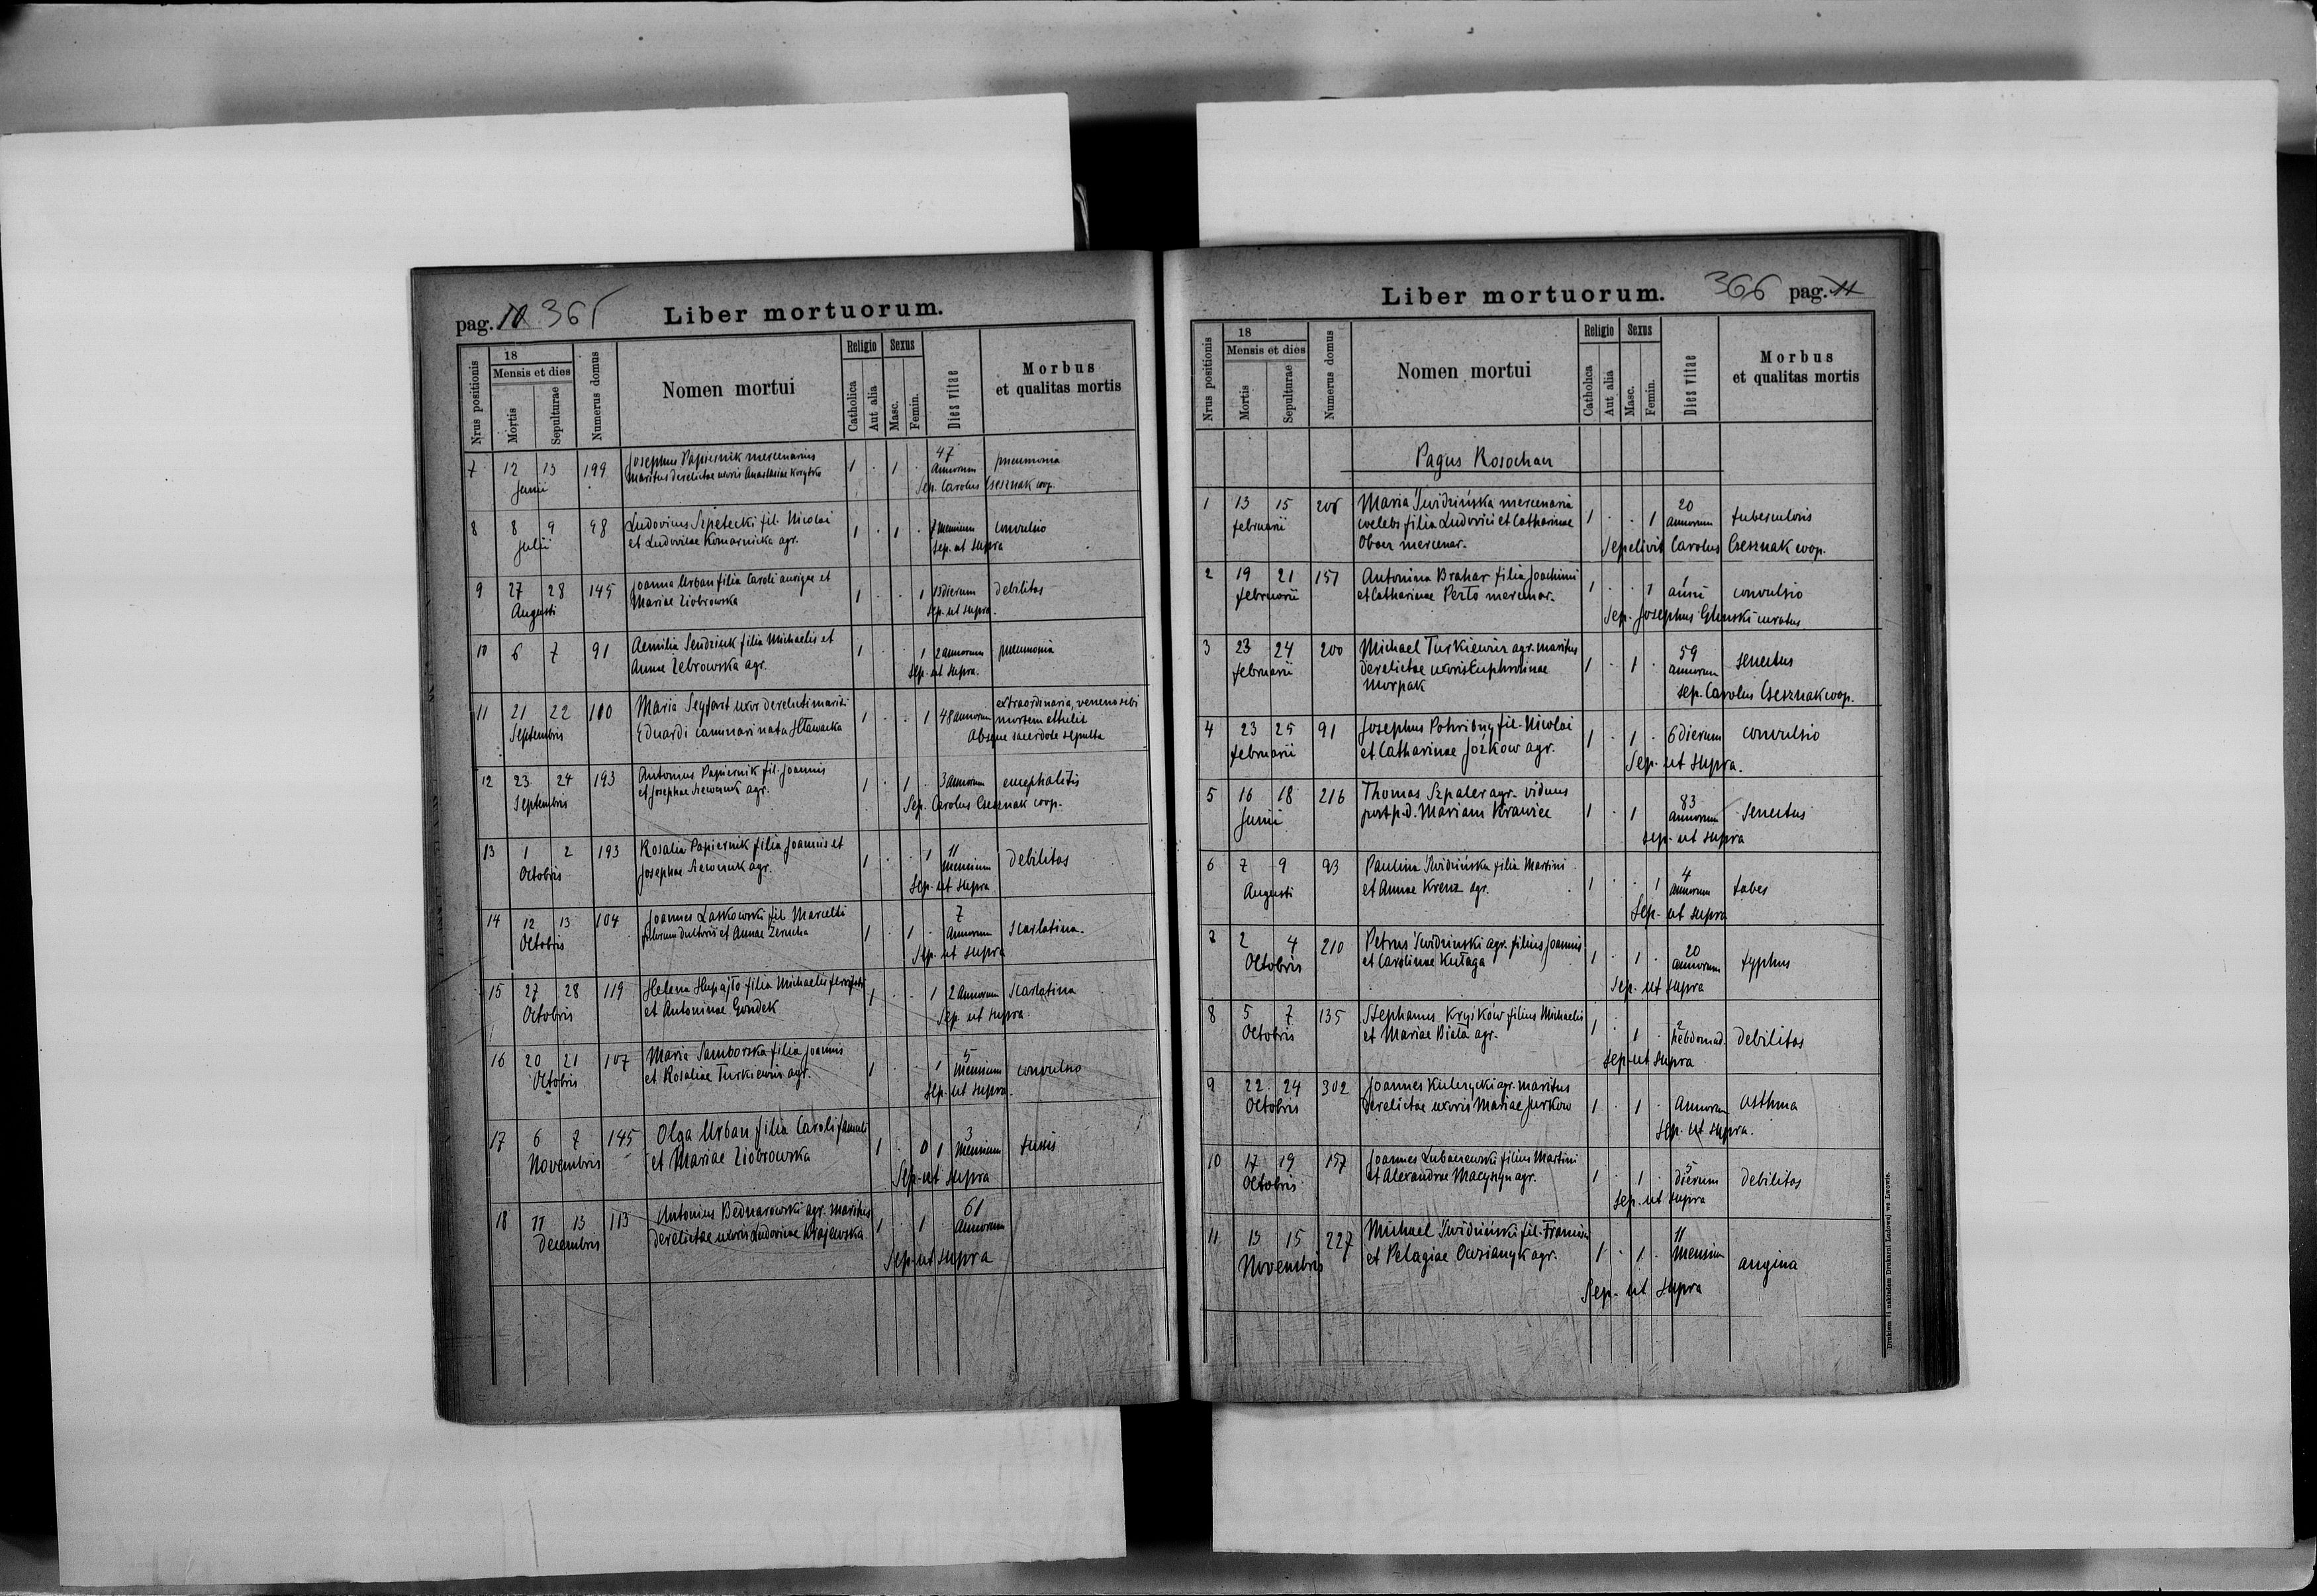 pag. 10 365 Liber mortuorum.
Nrus positionis
18
Mensis et dies
Mortis
Sepulturae
Numerus domus
Nomen mortui
Religio
Catholica
Aut alia
Sexus
Masc.
Femin.
Dies vitae
Morbus
et qualitas mortis
7 12 13 199 Josephus Papiernik mercenarius 1 . 1 . 47 pneumonia
Junii maritus derelictae uxoris Anastasiae annorum
Sep. Carolus Csesznak coop.
8 8 9 98 Ludovicus Szpetecki fil. Nicolai 1 . 1 . mensium convulsio
Julii et Ludovicae Komarnicka agr. sep. ut supra
9 27 28 145 Joanna Urban filia Caroli aurigae et 1 . . 1 13 dierum debilitas
Augusti Mariae Ziobrowska sep. ut supra.
10 6 7 91 Aemilia Sendziuk filia Michaelis et 1 . . 1 2 annorum pneumonia
Annae Zebrowska agr. sep. ut supra.
11 21 22 100 Maria Seyfart uxor derelicti mariti 1 . . 1 48 annorum extraordinaria, veneno sibi
Septembris Eduardi nata mortem attulit
Absque sacerdote sepulta
12 23 24 193 Antonius Papiernik fil. Joannis 1 . 1 . 3 annorum encephalitis
Septembris et Josephae agr. Sep. Carolus Csesznak coop.
13 1 2 193 Rosalia Papiernik filia Joannis et 1 . . 1 11 debilitas
Octobris Josephae agr. mensium
sep. ut supra
14 12 13 104 Joannes Laskowski fil. Marcelli 1 . 1 . 7 scarlatina.
Octobris et Annae annorum
Sep. ut supra
15 27 28 119 Helena filia Michaelis 1 . . 1 2 annorum scarlatina
Octobris et Antoninae Gondek Sep. ut supra.
16 20 21 107 Maria Samborska filia Joannis 1 . . 1 5 convulsio
Octobris et Rosaliae Turkiewicz agr. mensium
sep. ut supra.
17 6 7 145 Olga Urban filia Caroli famuli 1 . 0 1 3 tussis
Novembris et Mariae Ziobrowska mensium
Sep. ut supra
18 11 13 113 Antonius Bednarowski agr. maritus 1 . 1 . 61
Decembris derelictae uxoris Ludovicae Krajewska annorum
Sep. ut supra
Liber mortuorum. 366 pag. 11
Nrus positionis
18
Mensis et dies
Mortis
Sepulturae
Numerus domus
Nomen mortui
Religio
Catholica
Aut alia
Sexus
Masc.
Femin.
Dies vitae
Morbus
et qualitas mortis
Pagus Rosochan
1 13 15 Maria Świdzińska mercenaria 1 . . 1 20 tuberculosis
februarii coelebs filia Ludovici et Catharinae annorum
mercenar. Sepelivit Carolus Csesznak coop.
2 19 21 157 Antonina Brahar filia Joachimi 1 . . 1 anni convulsio
februarii et Catharinae Perło mercenar.
Sep. Josephus curatus
3 23 24 200 Michael Turkiewicz agr. maritus 1 . 1 . 59 senectus
februarii derelictae uxoris Euphrosinae annorum
Morpak sep. Carolus Csesznak coop.
4 23 25 91 Josephus Pohribny fil. Nicolai 1 . 1 . 6 dierum convulsio
februarii et Catharinae Jożkow agr. Sep. ut supra.
5 16 18 216 Thomas Szpaler agr. viduus 1 . 1 83 senectus
Junii post p.d. Mariam Krawiec annorum
sep. ut supra
6 7 9 93 Paulina Świdzińska filia Martini 1 . . 1 4 tabes
Augusti et Annae Krenz agr. annorum
Sep. ut supra
7 2 4 210 Petrus Świdzinski agr. filius Joannis 1 . 1 . 20 typhus
Octobris et Carolinae Kułaga annorum
Sep. ut supra
8 5 7 135 Stephanus Kryików filius Michaelis 1 . 1 . 2 debilitas
Octobris et Mariae Biała agr. hebdomad.
sep. ut supra
9 22 24 302 Joannes Kulczycki agr. maritus 1 . 1 . annorum asthma
Octobris derelictae uxoris Mariae Jurkow
sep. ut supra.
10 17 19 157 Joannes filius Martini 1 . 1 . 5 debilitas
Octobris et Alexandrae agr. dierum
sep. ut supra
11 13 15 227 Michael Świdziński fil. Francisci 1 . 1 . 11 angina
Novembris et Pelagiae agr. mensium
Sep. ut supra
Drukiem i nakładem Drukarni Ludowej we Lwowie.